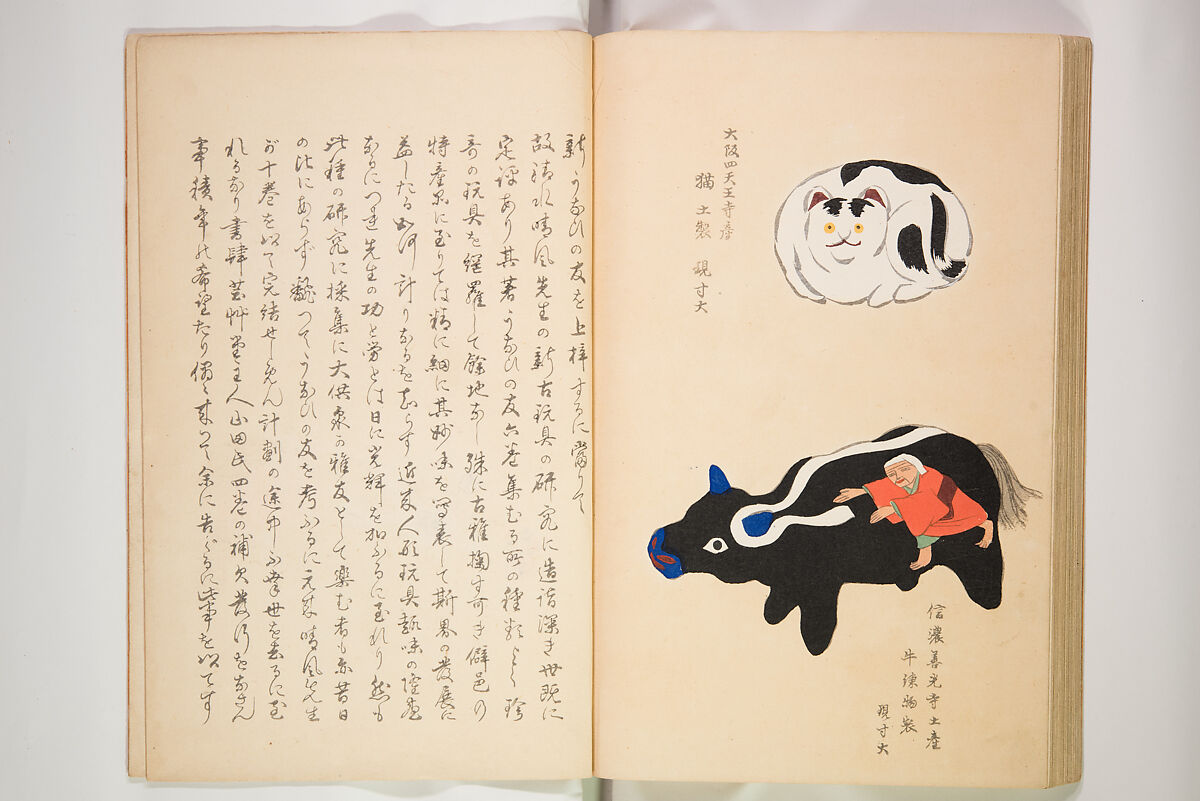 大阪四天王寺産
猫 土製 現寸大
信濃善光寺土産
牛 煉物製
現寸大
新うなゐの友を上梓するに当りて
故清水晴風先生の新古玩具の研究に造詣深き世既に
定評あり其著うなゐの友六巻集むる所の種類
奇の玩具を網羅して余地なし殊に古雅掬すべき僻邑の
特産品に至りては精に細に其妙味を写表して斯界の発展に
益したる如何計りなるを知らず近来人形玩具趣味の隆盛
なるにつれ先生の功と労とは日に光輝を加ふるに至れり然も
此種の研究に採集に大供衆の雅友として楽む者も亦昔日
の比にあらず飜つてうなゐの友を考ふるに元来晴風先生
が十巻を以て完結せしめん計劃の途中不幸世を去るに至
れるなり書肆芸艸堂主人山田氏四巻の補欠発行をなさん
事積年の希望たり偶々来つて余に告ぐるに此事を以てす